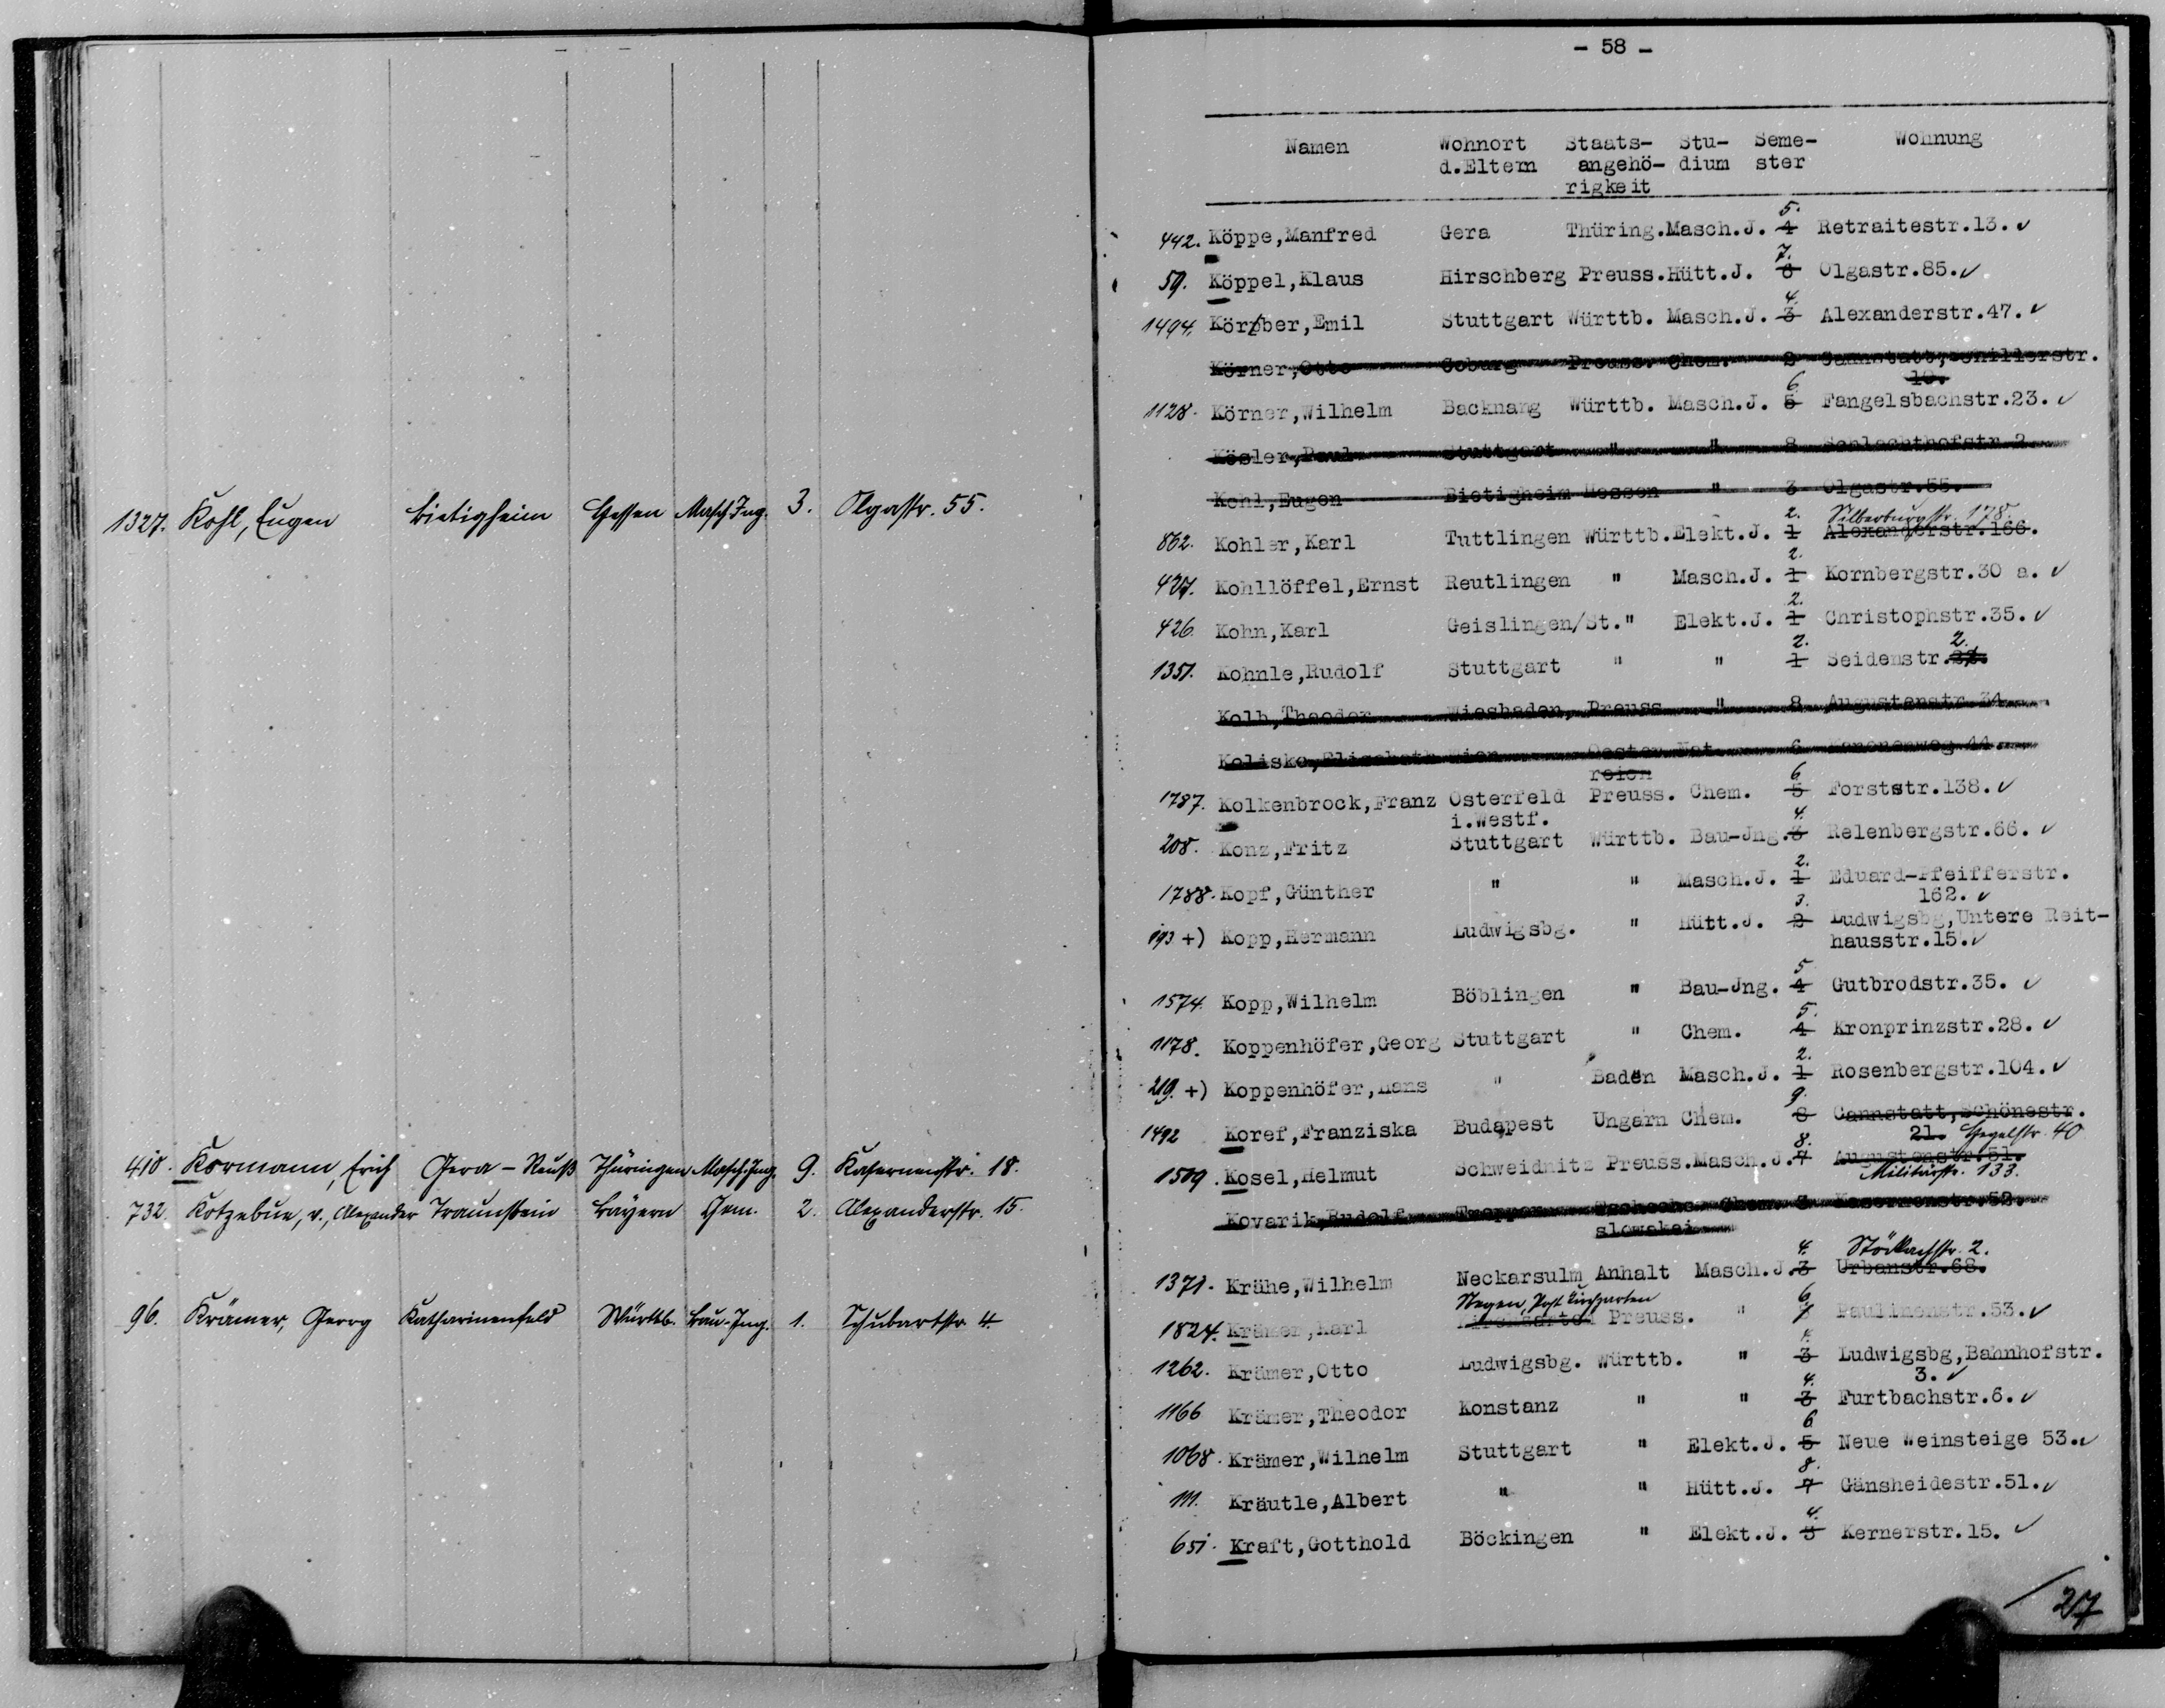 1327. Kohl, Eugen Bietigheim Hessen Masch.Ing. 3. Olgastr. 55.
410. Kormann, Erich Gera-Reuß Thüringen Masch.Ing. 9. Kasernenstr. 18.
732 Kotzebue, v., Alexander Traunstein Bayern Chem. 2. Alexanderstr. 15.
96. Krämer, Georg Katharinenfeld Württb. Bau-Ing. 1. Schubartstr. 4.
- 58 -
Namen Wohnort Staats- Stu- Seme- Wohnung
d.Eltern angehö- dium ster
rigkeit
5.
442. Köppe,Manfred Gera Thüring.Masch.J. 4 Retraitestr.13. ✓
7.
59. Köppel,Klaus Hirschberg Preuss.Hütt.J. 6 Olgastr.85. ✓
4.
1494. Körber,Emil Stuttgart Württb. Masch.J. 3 Alexanderstr.47. ✓
Körner,Otto Coburg Preuss. Chem. 2 Cannstatt,Schillerstr.
10.
6
1128. Körner,Wilhelm Backnang Württb. Masch.J. 5 Fangelsbachstr.23. ✓
Kösler,Paul Stuttgart " " 8 Schlachthofstr.2
Kohl,Eugen Bietigheim Hessen " 3 Olgastr.55.
2. Silberburgstr. 178.
862. Kohler,Karl Tuttlingen Württb.Elekt.J. 1 Alexanderstr.166.
2.
427. Kohllöffel,Ernst Reutlingen " Masch.J. 1 Kornbergstr.30 a. ✓
2.
426. Kohn,Karl Geislingen/St." Elekt.J. 1 Christophstr.35. ✓
2. 2.
1351. Kohnle,Rudolf Stuttgart " " 1 Seidenstr.22.
Kolb,Theodor Wiesbaden, Preuss " 8 Augustenstr.34
Kolisko,Elisabeth Wien Oester Nat. 6 Kanonenweg 44
reich
6
1787. Kolkenbrock,Franz Osterfeld Preuss. Chem. 5 Forststr.138. ✓
i.Westf.
4.
208. Konz,Fritz Stuttgart Württb. Bau-Jng.3 Relenbergstr.66. ✓
2.
1788. Kopf,Günther " " Masch.J. 1 Eduard-Pfeifferstr.
162. ✓
3.
193 +) Kopp,Hermann Ludwigsbg. " Hütt.J. 2 Ludwigsbg,Untere Reit-
hausstr.15. ✓
5
1574. Kopp,Wilhelm Böblingen " Bau-Jng. 4 Gutbrodstr.35. ✓
5.
1178. Koppenhöfer,Georg Stuttgart " Chem. 4 Kronprinzstr.28. ✓
2.
219. +) Koppenhöfer,Hans " Baden Masch.J. 1 Rosenbergstr.104. ✓
9.
1492 Koref,Franziska Budapest Ungarn Chem. 8 Cannstatt,Schönestr.
21. Hegelstr. 40
8.
1509. Kosel,Helmut Schweidnitz Preuss.Masch.J.7 Augustenstr.51.
Militärstr. 133.
Kovarik,Rudolf Troppau Tschecho Chem. 3 Kasernenstr.52.
slowakei
4. Stöckachstr. 2.
1371. Krähe,Wilhelm Neckarsulm Anhalt Masch.J.3 Urbanstr.68.
Stegen, Post Kirchzarten 6
1824. Krämer,Karl Kirchzarten Preuss. " Paulinenstr.53. ✓
4.
1262. Krämer,Otto Ludwigsbg. Württb. " 3 Ludwigsbg,Bahnhofstr.
3. ✓
4.
1166 Krämer,Theodor Konstanz " " 3 Furtbachstr.6. ✓
6
1068. Krämer,Wilhelm Stuttgart " Elekt.J. 5 Neue Weinsteige 53. ✓
8.
111. Kräutle,Albert " " Hütt.J. 7 Gänsheidestr.51. ✓
4.
651. Kraft,Gotthold Böckingen " Elekt.J. 3 Kernerstr.15. ✓
27